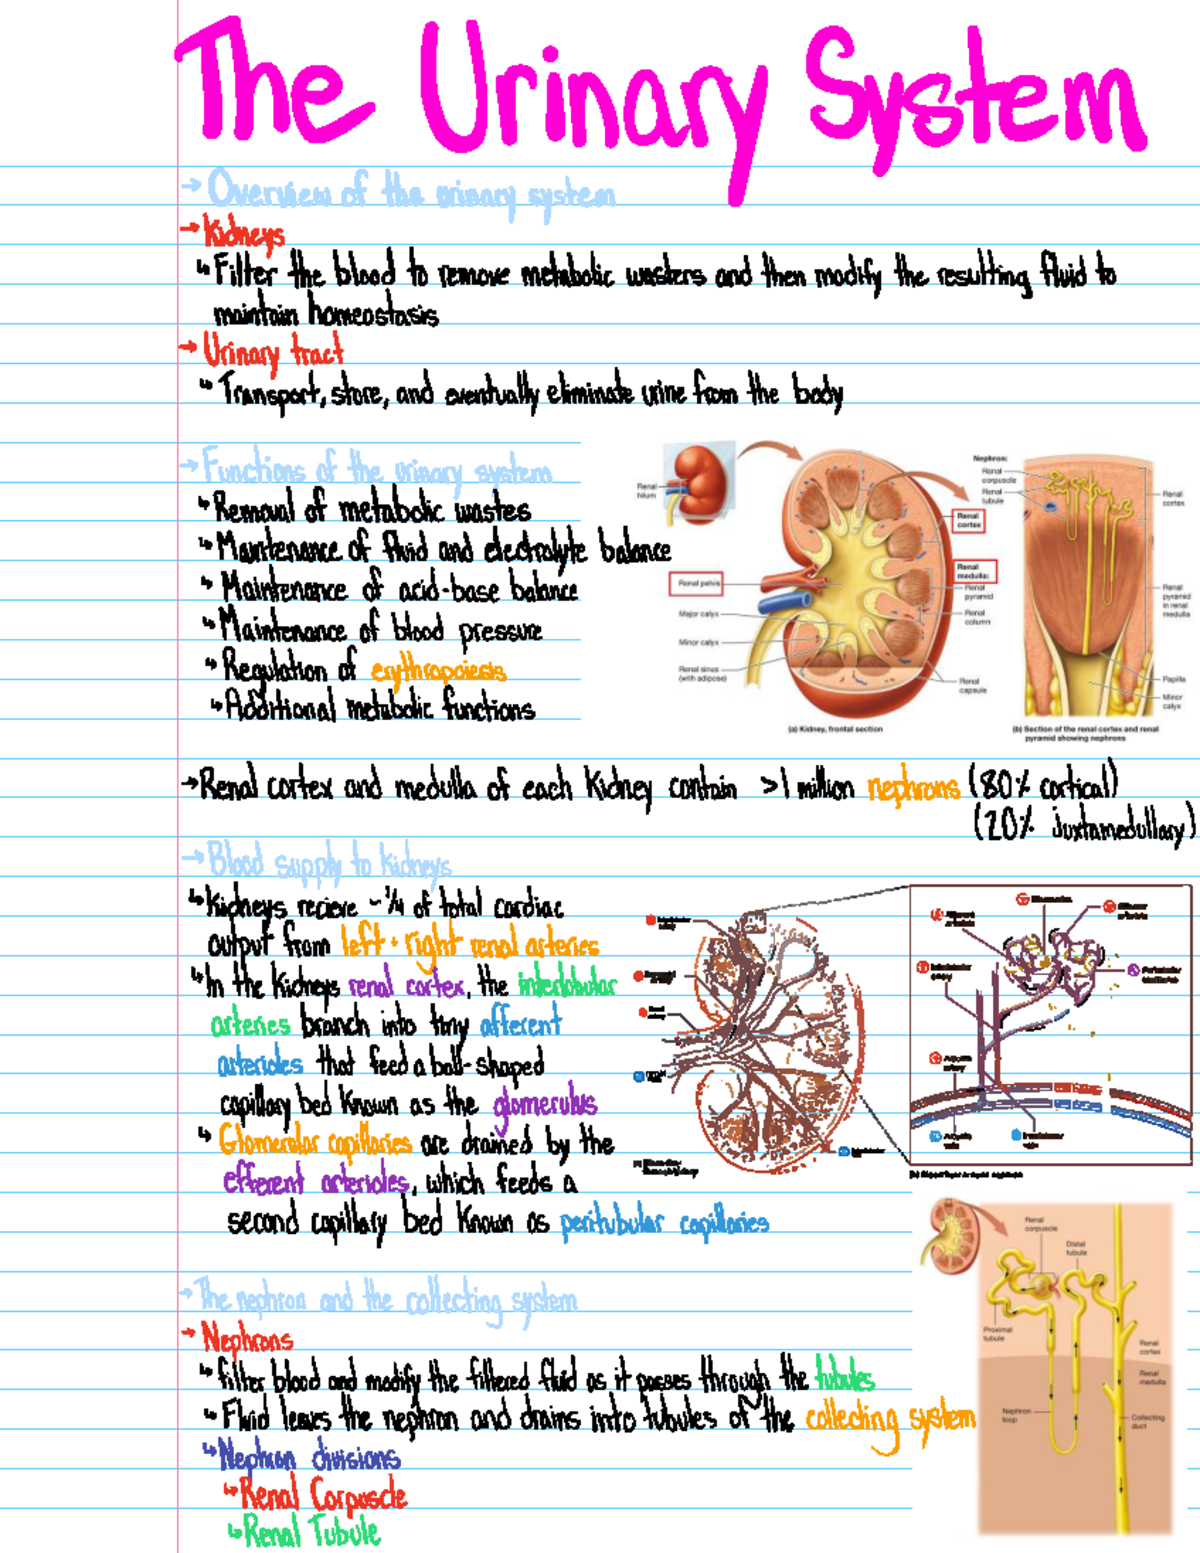 The Urinary System
→ Overview of the urinary system
→ Kidneys
↳ Filter the blood to remove metabolic wasters and then modify the resulting fluid to
maintain homeostasis
→ Urinary tract
↳ Transport, store, and eventually eliminate urine from the body
→ Functions of the urinary system
↳ Removal of metabolic wastes
↳ Maintenance of fluid and electrolyte balance
↳ Maintenance of acid-base balance
↳ Maintenance of blood pressure
↳ Regulation of erythropoiesis
↳ Additional metabolic functions
Renal
hilum
Renal
cortex
Renal
medulla:
Renal
pyramid
Renal
column
Renal pelvis
Major calyx
Minor calyx
Renal sinus
(with adipose)
Renal
capsule
(a) Kidney, frontal section
Nephron:
Renal
corpuscle
Renal
tubule
Renal
cortex
Renal
pyramid
in renal
medulla
Papilla
Minor
calyx
(b) Section of the renal cortex and renal
pyramid showing nephrons
→ Renal cortex and medulla of each Kidney contain >1 million nephrons (80% cortical)
(20% juxtamedullary)
→ Blood supply to Kidneys
↳ Kidneys recieve ~¼ of total cardiac
output from left + right renal arteries
↳ In the Kidneys renal cortex, the interlobular
arteries branch into tiny afferent
arterioles that feed a ball-shaped
capillary bed Known as the glomerulus
↳ Glomerular capillaries are drained by the
efferent arterioles, which feeds a
second capillary bed Known as peritubular capillaries
→ The nephron and the collecting system
→ Nephrons
↳ filter blood and modify the filtered fluid as it passes through the tubules
↳ Fluid leaves the nephron and drains into tubules of the collecting system
↳ Nephron divisions
↳ Renal Corpuscle
↳ Renal Tubule
Renal
corpuscle
Distal
tubule
Proximal
tubule
Renal
cortex
Renal
medulla
Nephron
loop
Collecting
duct